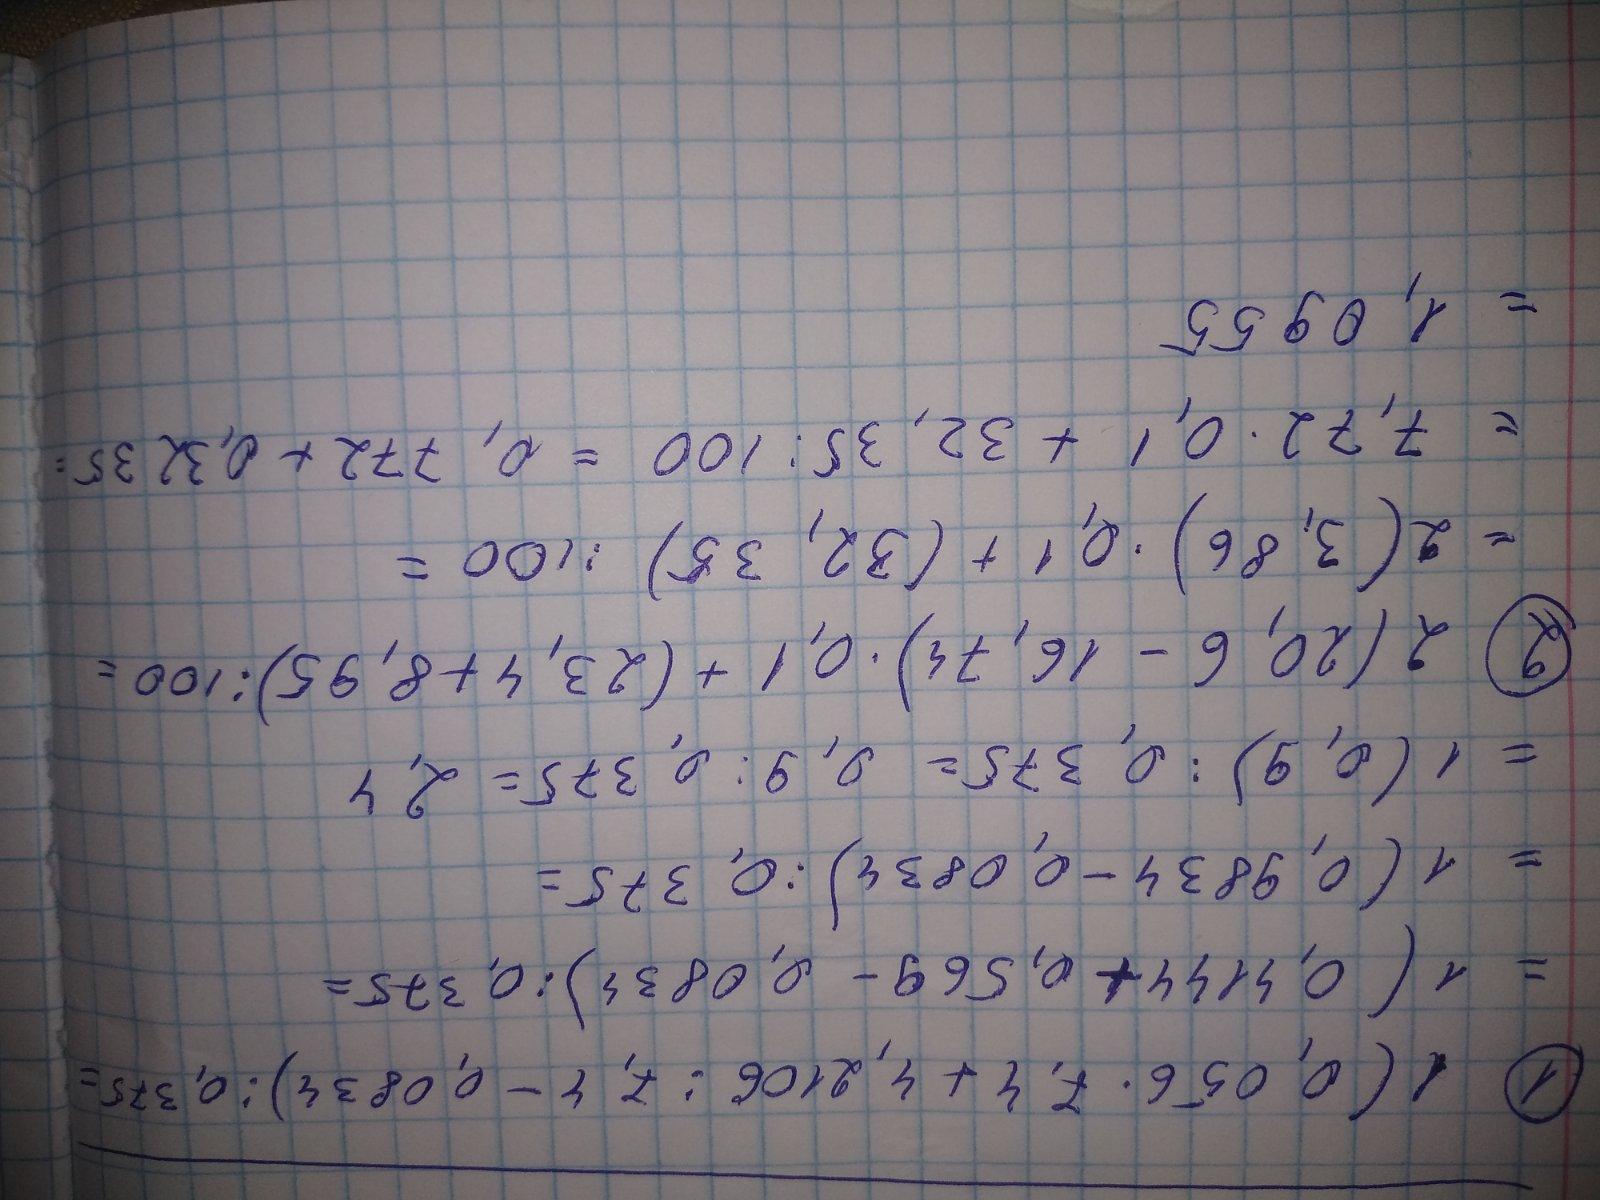 ① 1(0,056·7,4+4,2106:7,4-0,0834):0,375=
= 1(0,4144+0,569-0,0834):0,375=
= 1(0,9834-0,0834):0,375=
= 1(0,9):0,375= 0,9:0,375= 2,4
② 2(20,6-16,74)·0,1+(23,4+8,95):100=
=2(3,86)·0,1+(32,35):100=
= 7,72·0,1+32,35:100=0,772+0,3235=
= 1,0955